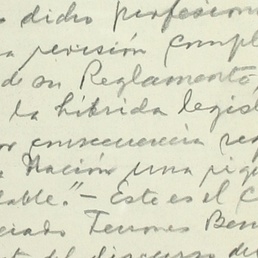 dicho profesion
a revisión compl
de su Reglamento,
la híbrida legis
or consecuencia re
a Nación una pig
lable." — Este es el C
ciado Terrones Ben
del discurso de